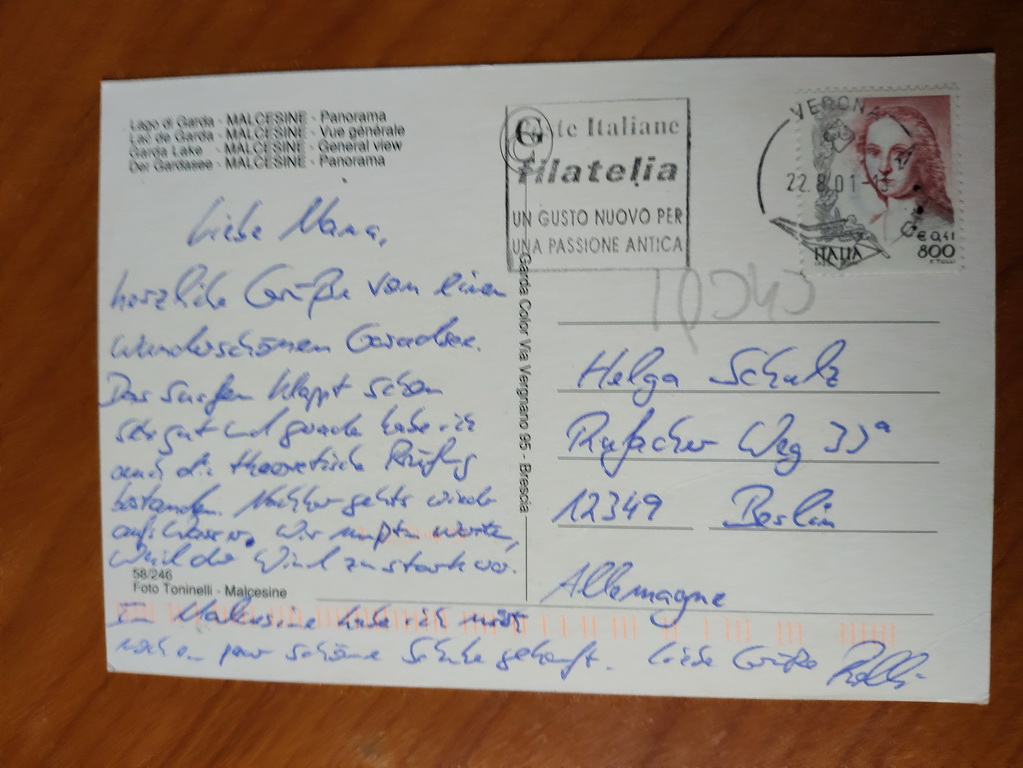 Lago di Garda - MALCESINE - Panorama
Lac de Garda - MALCESINE - Vue générale
Garda Lake - MALCESINE - General view
Der Gardasee - MALCESINE - Panorama
Liebe Mama,
herzliche Grüße vom
wunderschönen Gardasee.
Das Surfen klappt schon
sehr gut und gerade habe ich
auch die theoretische Prüfung
bestanden. Nachher gehts wieder
aufs Wasser. Wir mußten warten,
weil der Wind zu stark war.
58/246
Foto Toninelli - Malcesine
In Malcesine habe ich mir
noch ein paar schöne Schuhe gekauft. Liebe Grüße
Garda Color Via Vergnano 95 - Brescia
Poste Italiane
filatelia
UN GUSTO NUOVO PER
UNA PASSIONE ANTICA
VERONA
22.8.01
ITALIA
€ 0,41
800
Helga Schulz
Rufacher Weg 33a
12349 Berlin
Allemagne